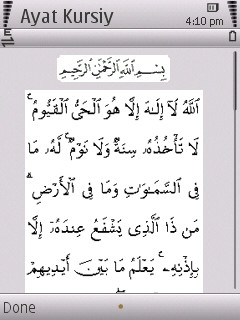 Ayat Kursiy
4:10 pm
بِسْمِ ٱللَّهِ ٱلرَّحْمَٰنِ ٱلرَّحِيمِ
ٱللَّهُ لَآ إِلَٰهَ إِلَّا هُوَ ٱلْحَىُّ ٱلْقَيُّومُ ۚ
لَا تَأْخُذُهُۥ سِنَةٌ وَلَا نَوْمٌ ۚ لَّهُۥ مَا
فِى ٱلسَّمَٰوَٰتِ وَمَا فِى ٱلْأَرْضِ ۗ
مَن ذَا ٱلَّذِى يَشْفَعُ عِندَهُۥٓ إِلَّا
بِإِذْنِهِۦ ۚ يَعْلَمُ مَا بَيْنَ أَيْدِيهِمْ
Done